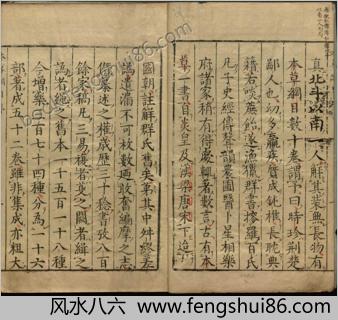 真北斗以南一人解其裝無長物有
本草綱目數十卷謂予曰時珍荊楚
鄙人也幼多羸疾質成鈍椎長耽典
籍若啖蔗飴遂漁獵群書搜羅百氏
凡子史經傳聲韻農圃醫卜星相樂
府諸家稍有得處輒著數言古有本
草一書自炎皇及漢梁唐宋下迨
國朝註解群氏舊矣第其中舛繆差
譌遺漏不可枚數廼敢奮編摩之志
僭纂述之權歲歷三十稔書攷八百
餘家稿凡三易複者芟之闕者緝之
譌者繩之舊本一千五百一十八種
今增藥三百七十四種分為一十六
部著成五十二卷雖非集成亦粗大
风水八六 www.fengshui86.com